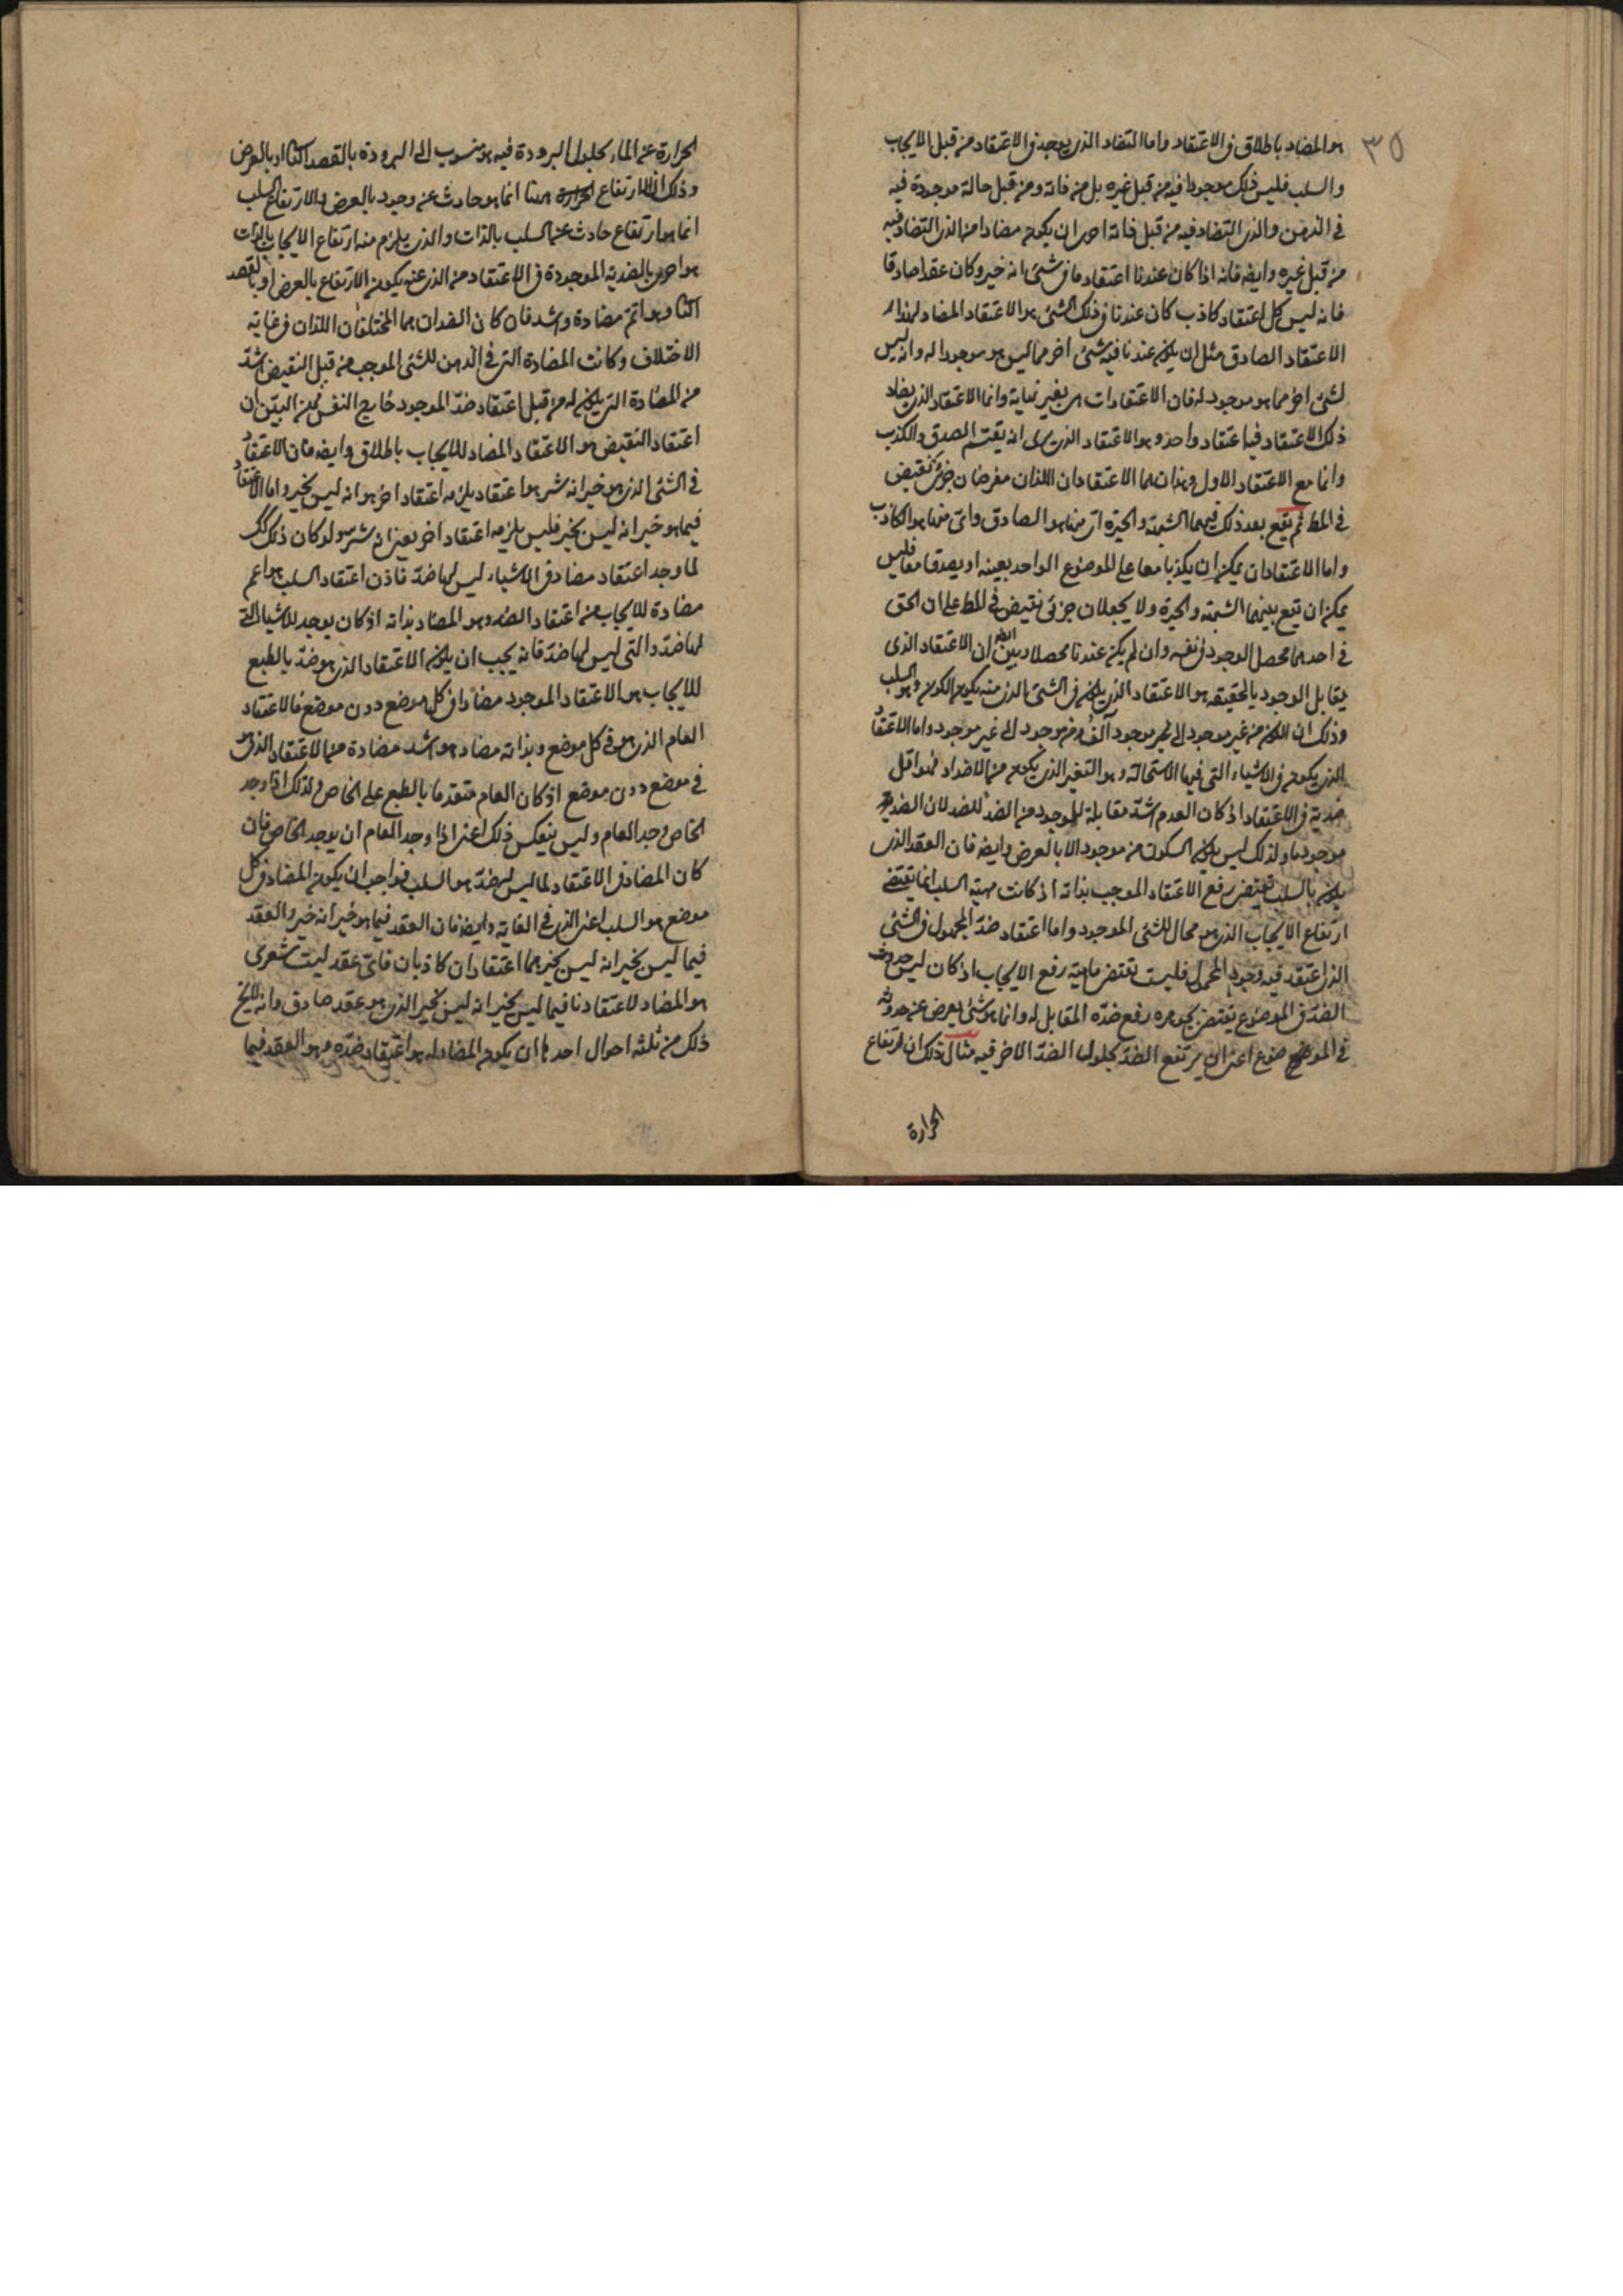 ٣٥
هو المضاد باطلاق في الاعتقاد واما التضاد الذي يوجد في الاعتقاد من قبل الايجاب
والسلب فليس ذلك موجودا فيه من قبل غيره بل من ذاته ومن قبل حالة موجودة فيه
في الذهن والذي التضاد فيه من قبل ذاته احرى ان يكون مضادا من الذي التضاد فيه
من قبل غيره وايضا فانه اذا كان عندنا اعتقاد ما في شئ انه خير وكان عقدا صادقا
فانه ليس كل اعتقاد كاذب كان عندنا في ذلك الشئ هو الاعتقاد المضاد لهذا
الاعتقاد الصادق مثل ان يكون عندنا فيه شئ اخر مما ليس هو موجودا له وانه ليس
لشئ اخر مما هو موجود له فان الاعتقادات هي بغير نهاية وانما الاعتقاد الذي يضاد
ذلك الاعتقاد فيه اعتقاد واحد وهو الاعتقاد الذي يرى انه يقتسم الصدق والكذب
دائما مع الاعتقاد الاول وهذان هما الاعتقادان اللذان مفرضان جزئي نقيض
في المط ثم يقع بعد ذلك فيهما الشبهة والحيرة اي منهما هو الصادق واي منهما هو الكاذب
واما الاعتقادان يمكن ان يكذبا معا على الموضوع الواحد بعينه او يصدقا معا فليس
يمكن ان تقع بينهما الشبهة والحيرة ولا يجعلان جزئي نقيض في المط على ان الحق
في احدهما محصل الوجود في نفسه وان لم يكن عندنا محصلا وبين ايضا ان الاعتقاد الذي
يقابل الوجود بالحقيقة هو الاعتقاد الذي يكون في الشئ الذي منه يكون الكون وهو السلب
وذلك ان الكون من غير موجود الى موجود والفساد من موجود الى غير موجود واما الاعتقاد
الذي يكون في الاشياء التي فيها الاستحالة وهو التغير الذي يكون من الاضداد فهو اقل
ضدية في الاعتقاد اذ كان العدم اشد مقابلة للموجود من الضد للضد لان الضد
موجود ما ولذلك ليس يكون السكون من موجود الا بالعرض وايضا فان العقد الذي
يكون بالسلب يقتضي رفع الاعتقاد الموجب بذاته اذ كانت مهية السلب انما تقتضي
ارتفاع الايجاب الذي هو محال للشئ الموجود واما اعتقاد ضد المحمول في الشئ
الذي اعتقد فيه وجود المحمول فليست تقتضي ماهيته رفع الايجاب اذ كان ليس حدوث
الضد في الموضوع يقتضي بجوهره رفع ضده المقابل له وانما هو شئ يعرض عن حدوثه
في الموضوع اعني ان يرتفع الضد بحلول الضد الاخر فيه مثال ذلك ان ارتفاع
الحرارة
الحرارة عن الماء بحلول البرودة فيه هو منسوب الى البرودة بالقصد الثاني او بالعرض
وذلك ان الارتفاع هنا انما هو حادث عن وجود بالعرض والارتفاع السلب
انما هو ارتفاع حادث عن السلب بالذات والذي يلزم منه ارتفاع الايجاب بالذات
هو احرى بالضدية الموجودة في الاعتقاد من الذي عنه يكون الارتفاع بالعرض او بالقصد
الثاني وهو اتم مضادة واشد فان كان الضدان هما المختلفان اللذان في غاية
الاختلاف وكانت المضادة التي في الذهن للشئ الموجب من قبل النقيض اشد
من المضادة التي يكون له من قبل اعتقاد ضد الموجود خارج النفس فمن البين ان
اعتقاد النقيض هو الاعتقاد المضاد للايجاب باطلاق وايضا فان الاعتقاد
في الشئ الذي هو خير انه شر هو اعتقاد يلزمه اعتقاد اخر هو انه ليس بخير واما الاعتقاد
فيما هو خير انه ليس بخير فليس يلزمه اعتقاد اخر يعني انه شر ولو كان ذلك كك
لما وجد اعتقاد مضاد في الاشياء ليس لها ضد فاذن اعتقاد السلب هو اعم
مضادة للايجاب من اعتقاد الضد وهو المضاد بذاته اذ كان يوجد للاشياء التي
لها ضد والتي ليس لها ضد فانه يجب ان يكون الاعتقاد الذي هو ضد بالطبع
للايجاب هو الاعتقاد الموجود مضادا في كل موضع دون موضع فالاعتقاد
العام الذي هو في كل موضع وبذاته مضاد هو اشد مضادة من الاعتقاد الذي هو
في موضع دون موضع اذ كان العام متقدما بالطبع على الخاص ولذلك اذا وجد
الخاص وجد العام وليس ينعكس ذلك اعني اذا وجد العام ان يوجد الخاص فان
كان المضاد في الاعتقاد لما ليس له ضد هو السلب فواجب ان يكون المضاد في كل
موضع هو السلب اعني الذي في الغاية وايضا فان العقد فيما هو خير انه خير والعقد
فيما ليس بخير انه ليس بخير هما اعتقادان كاذبان فاي عقد ليت شعري
هو المضاد لاعتقادنا فيما ليس بخير انه ليس بخير الذي هو عقد صادق وانه لا يخ
ذلك من ثلثة احوال احدها ان يكون المضاد له هو اعتقاد ضده وهو العقد فيما